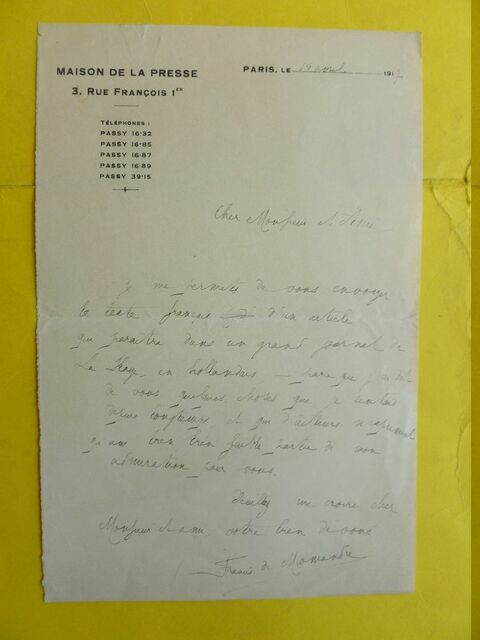 MAISON DE LA PRESSE
3, RUE FRANÇOIS IER
TÉLÉPHONES :
PASSY 16-32
PASSY 16-85
PASSY 16-87
PASSY 16-89
PASSY 39-15
PARIS, LE 14 avril 1917
Cher Monsieur et
Je me permets de vous envoyer
le texte français d'un article
qui paraîtra dans un grand journal de
La Haye, en hollandais — où j'ai dit
de vous quelques choses que je
depuis longtemps, et qui d'ailleurs n'expriment
qu'une bien bien faible partie de mon
admiration pour vous.
Veuillez me croire, cher
Monsieur et ami, votre bien dévoué
Francis de Miomandre